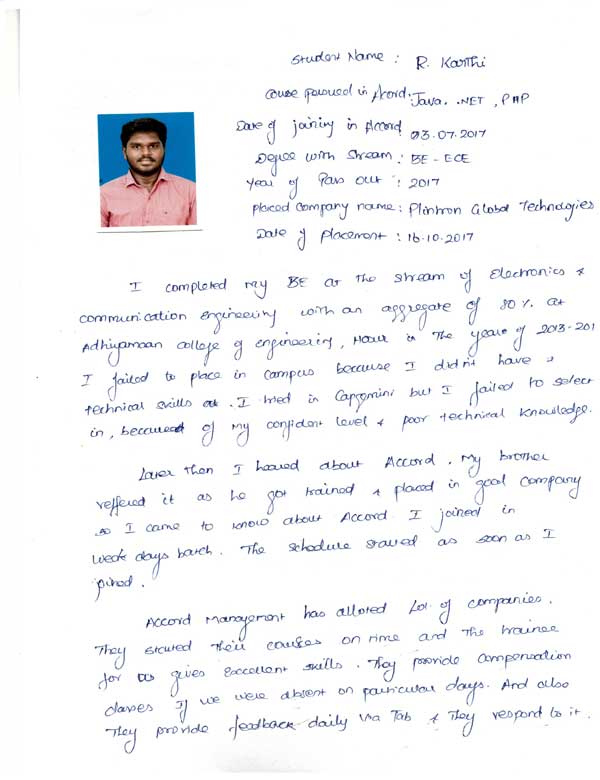 Student Name : R. Karthi
Course pursued in Accord : Java, .NET, PHP
Date of joining in Accord : 03.07.2017
Degree with Stream : BE - ECE
Year of Pass out : 2017
Placed Company name : Plintron Global Technologies
Date of placement : 16.10.2017
I completed my BE at the stream of Electronics &
communication engineering with an aggregate of 80% at
Adhiyamaan college of engineering, Hosur in the years of 2013-201
I failed to place in campus because I didn't have
technical skills. I tried in Capgemini but I failed to select
in, because of my confident level & poor technical knowledge.
Later then I heared about Accord. My brother
reffered it as he got trained & placed in good company
so I came to know about Accord. I joined in
week days batch. The schedule started as soon as I
joined.
Accord Management has alloted Lot of companies.
They started their courses on time and the trainee
for us gives excellent skills. They provide compensation
classes if we were absent on particular days. And also
They provide feedback daily via Tab & They respond to it.